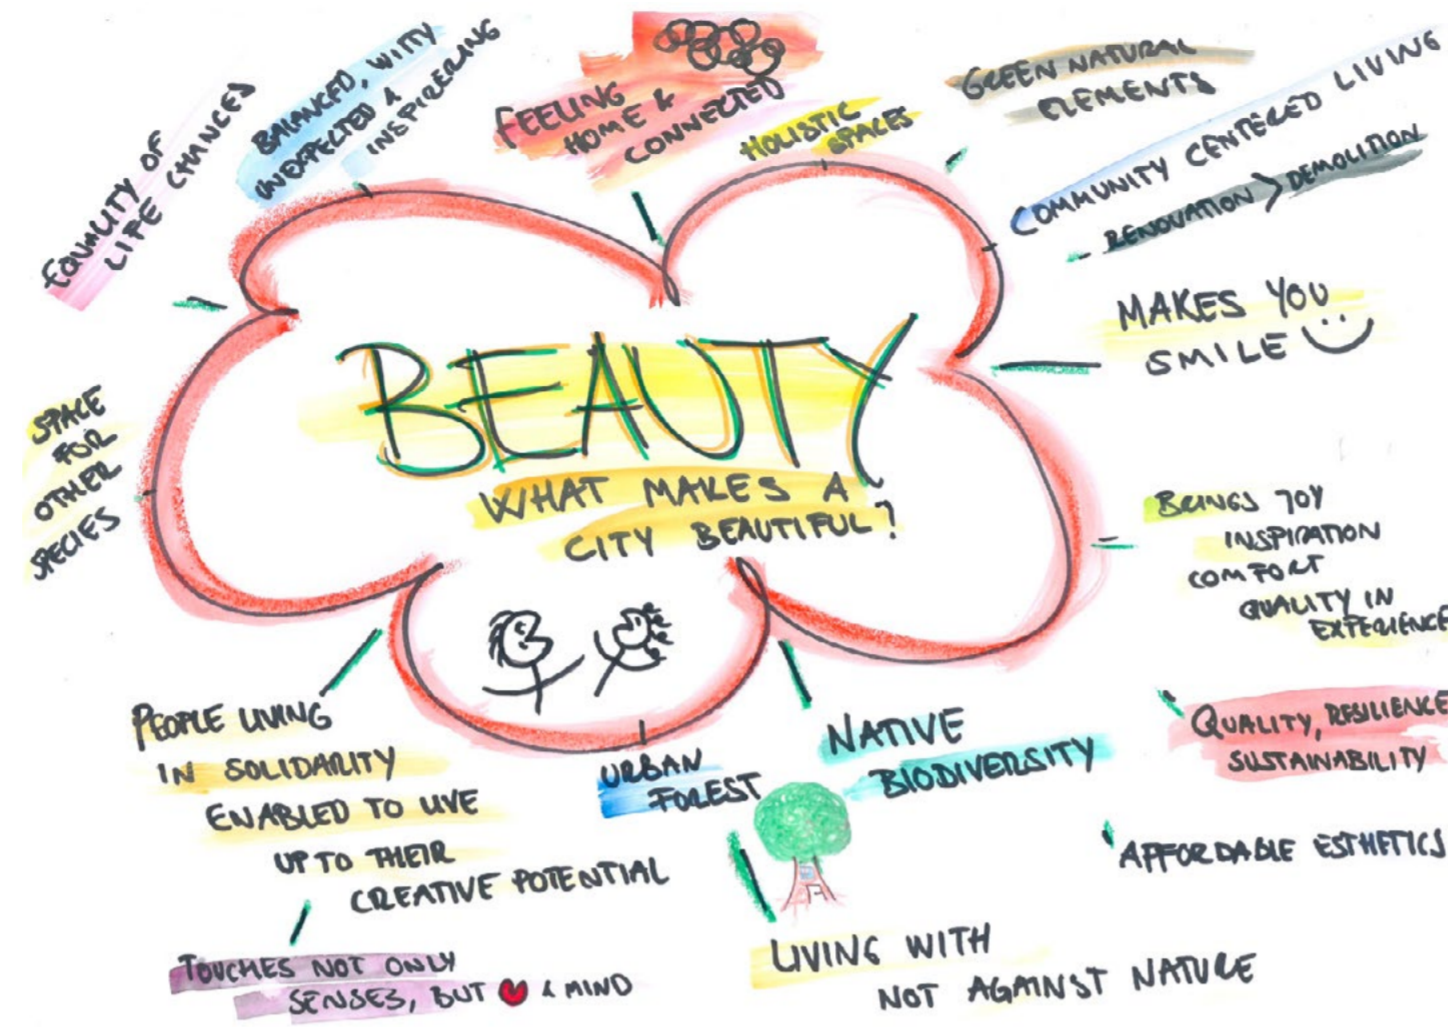 BEAUTY
WHAT MAKES A
CITY BEAUTIFUL?
EQUALITY OF
LIFE CHANCES
BALANCED, WITTY
UNEXPECTED &
INSPIRERANG
FEELING
HOME &
CONNECTED
HOLISTIC
SPACES
GREEN NATURAL
ELEMENTS
COMMUNITY CENTERED LIVING
RENOVATION > DEMOLITION
MAKES YOU
SMILE
BRINGS JOY
INSPIRATION
COMFORT
QUALITY IN
EXPERIENCE
QUALITY, RESILIENCE
SUSTAINABILITY
AFFORDABLE ESTHETICS
NATIVE
BIODIVERSITY
LIVING WITH
NOT AGAINST NATURE
URBAN
FOREST
PEOPLE LIVING
IN SOLIDARITY
ENABLED TO LIVE
UP TO THEIR
CREATIVE POTENTIAL
TOUCHES NOT ONLY
SENSES, BUT ❤ & MIND
SPACE
FOR
OTHER
SPECIES